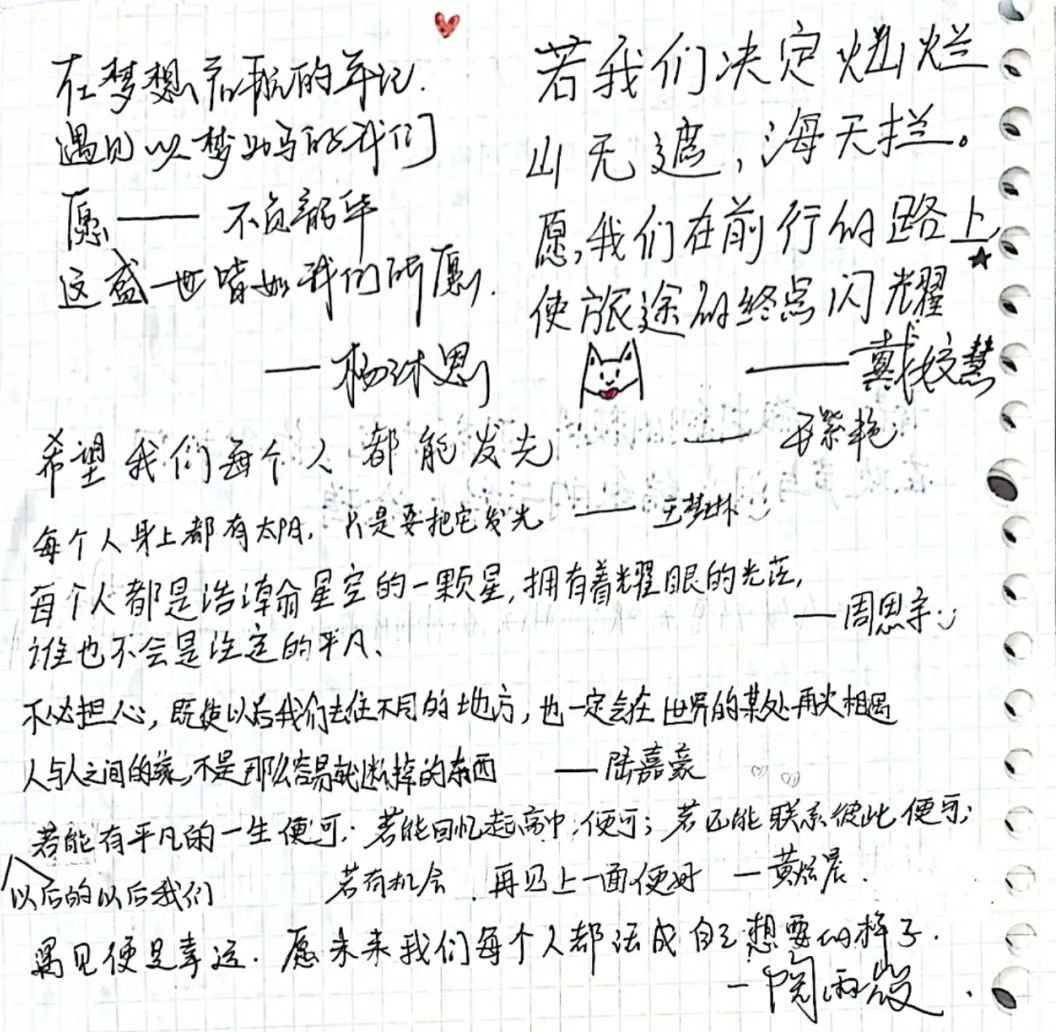 在梦想启航的年纪.
遇见以梦为马的我们
愿——不负韶华
这盛世皆如我们所愿.
—杨沐恩
若我们决定灿烂
山无遮,海无拦。
愿,我们在前行的路上
使旅途的终点闪光耀
——戴姣慧
希望我们每个人都能发光 —— 紫艳
每个人身上都有太阳,只是要把它发光 —— 王梦琳
每个人都是浩瀚星空的一颗星,拥有着耀眼的光茫,
——周思宇
谁也不会是注定的平凡、
不必担心,既使以后我们去往不同的地方,也一定会在世界的某处再次相遇
人与人之间的缘,不是那么容易就断掉的东西 ——陆嘉豪
若能有平凡的一生便可;若能回忆起高中,便可;若还能联系彼此便可;
以后的以后我们 若有机会 再见上一面便好 —黄炫晨.
遇见便是幸运.愿未来我们每个人都活成自己想要的样子.
—雨